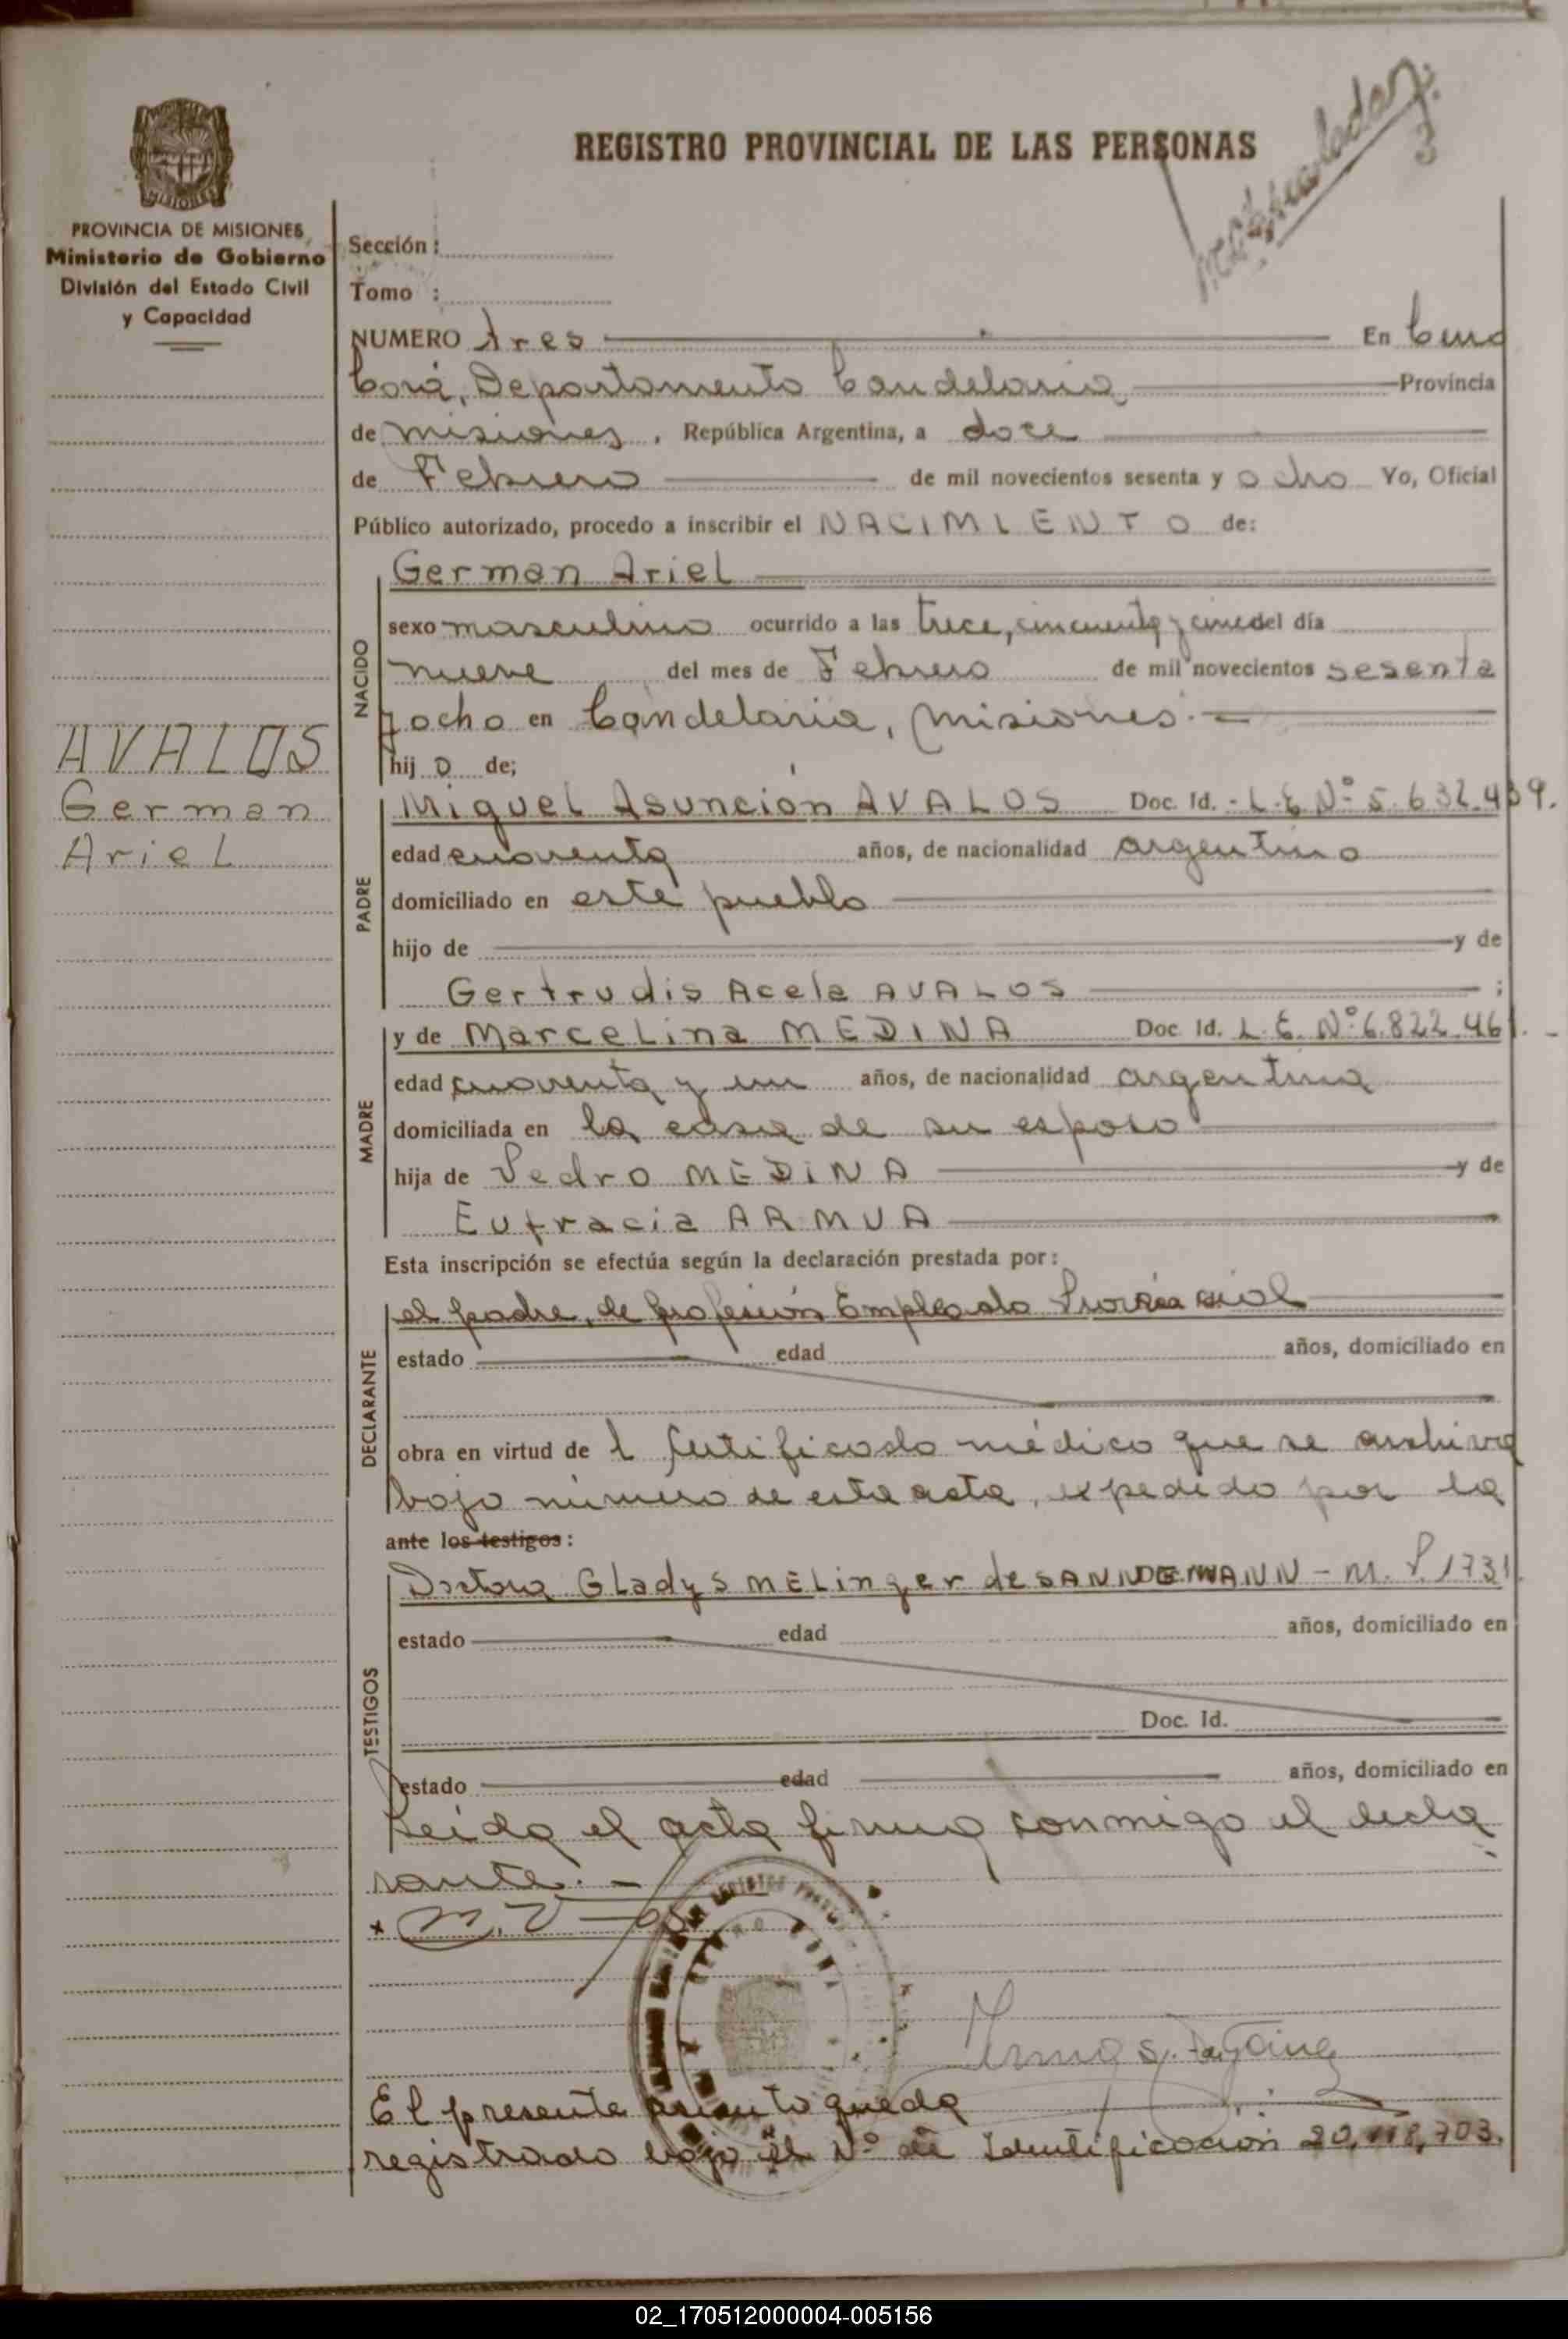 REGISTRO PROVINCIAL DE LAS PERSONAS
MISIONES
PROVINCIA DE MISIONES
Ministerio de Gobierno
División del Estado Civil
y Capacidad
Sección:
Tomo :
NUMERO tres En Cerro
Corá, Departamento Candelaria Provincia
de Misiones, República Argentina, a doce
de Febrero de mil novecientos sesenta y ocho Yo, Oficial
Público autorizado, procedo a inscribir el NACIMIENTO de:
NACIDO
German Ariel
sexo masculino ocurrido a las trece, cincuenta y cinco del día
nueve del mes de Febrero de mil novecientos sesenta
y ocho en Candelaria, Misiones.-
hij o de;
AVALOS
German
Ariel
PADRE
Miguel Asunción AVALOS Doc. Id. - L.E Nº 5.632.439.
edad cuarenta años, de nacionalidad argentino
domiciliado en este pueblo
hijo de y de
Gertrudis Acela AVALOS ;
MADRE
y de Marcelina MEDINA Doc. Id. L.E. Nº 6.822.461.-
edad cuarenta y un años, de nacionalidad argentina
domiciliada en la casa de su esposo
hija de Pedro MEDINA y de
Eufracia ARMUA
Esta inscripción se efectúa según la declaración prestada por:
DECLARANTE
el padre, de profesión Empleado Provincial
estado edad años, domiciliado en
obra en virtud de l Certificado médico que se archiva
bajo número de esta acta, expedido por la
ante los testigos:
TESTIGOS
Doctora Gladys MELinger de SANNDEMANN - M.P. 1731.
estado edad años, domiciliado en
Doc. Id.
estado edad años, domiciliado en
Leida el acta firma conmigo el decla
rante.-
El presente asiento queda
registrado bajo el Nº de Identificación 20,118,703.
02_170512000004-005156